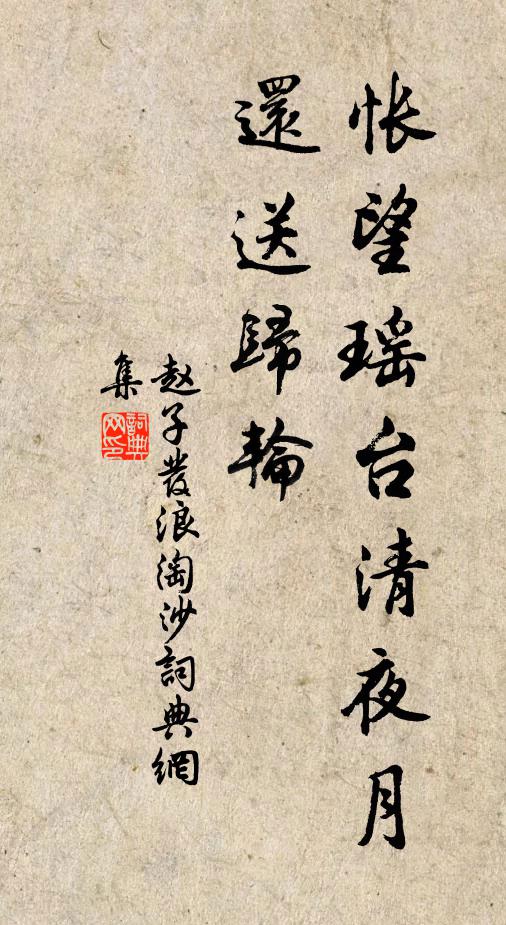 悵望瑶台清夜月
還送歸輪
赵子發浪淘沙詞典網
集
詞典网印